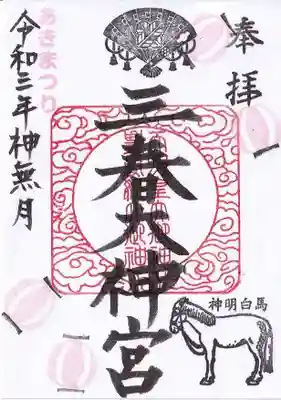 奉拝
三春大神宮
あきまつり
令和三年神無月
神明白馬